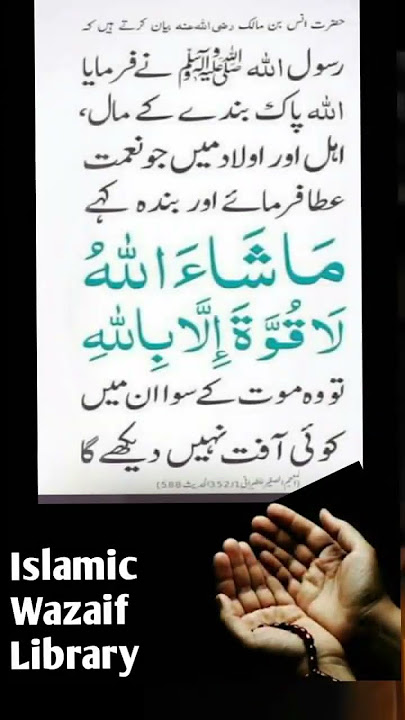 حضرت انس بن مالک رضی اللہ عنہ بیان کرتے ہیں کہ
رسول اللہ ﷺ نے فرمایا
اللہ پاک بندے کے مال،
اہل اور اولاد میں جو نعمت
عطا فرمائے اور بندہ کہے
مَا شَاءَ اللہُ
لَا قُوَّةَ إِلَّا بِاللہِ
تو وہ موت کے سوا ان میں
کوئی آفت نہیں دیکھے گا
(المعجم الصغیر للطبرانی 352/1 الحدیث 588)
Islamic
Wazaif
Library